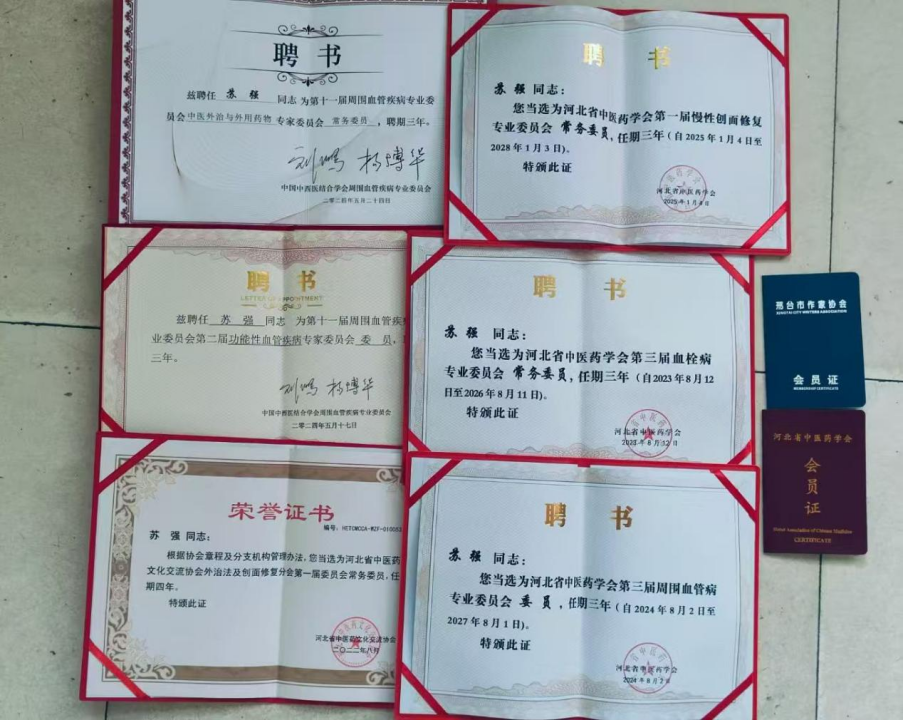 聘书
兹聘任 苏强 同志 为第十一届周围血管疾病专业委
员会中医外治与外用药物 专家委员会 常务委员,聘期三年。
刘鹏 杨博华
中国中西医结合学会周围血管疾病专业委员会
二零二四年五月二十四日
聘书
苏强 同志:
您当选为河北省中医药学会第一届慢性创面修复
专业委员会 常务委员,任期三年(自2025年1月4日至
2028年1月3日)。
特颁此证
河北省中医药学会
2025年1月4日
聘书
LETTER OF APPOINTMENT
兹聘任 苏强 同志 为第十一届周围血管疾
业委员会第二届功能性血管疾病专家委员会 委员,
三年。
刘鹏 杨博华
中国中西医结合学会周围血管疾病专业委员会
二零二四年五月十七日
聘书
苏强 同志:
您当选为河北省中医药学会第三届血栓病
专业委员会 常务委员,任期三年(自2023年8月12
日至2026年8月11日)。
特颁此证
河北省中医药学会
2023年8月12日
荣誉证书
苏强 同志:
根据协会章程及分支机构管理办法,您当选为河北省中医药
文化交流协会外治法及创面修复分会第一届委员会常务委员,任
期四年。
特颁此证
河北省中医药文化交流协会
二〇二二年八月
聘书
苏强 同志:
您当选为河北省中医药学会第三届周围血管病
专业委员会 委员,任期三年(自2024年8月2日至
2027年8月1日)。
特颁此证
河北省中医药学会
2024年8月2日
邢台市作家协会
XINGTAI CITY WRITERS ASSOCIATION
会员证
MEMBERSHIP CERTIFICATE
河北省中医药学会
会员证
CERTIFICATE